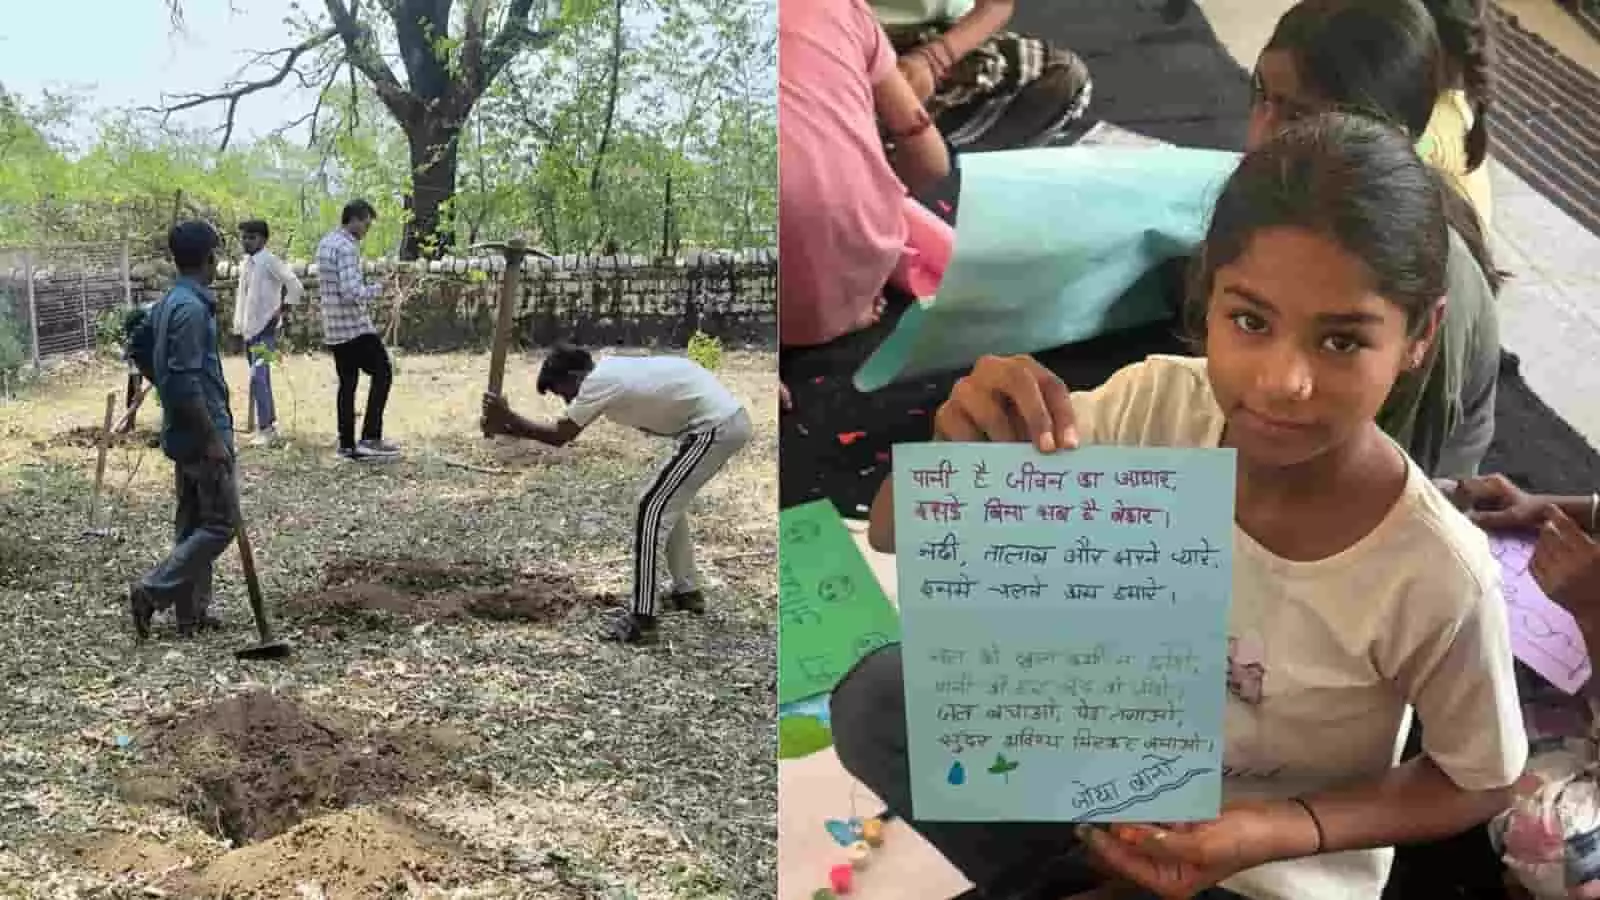 पानी है जीवन का आधार,
इसके बिना सब है बेकार।
नदी, तालाब और झरने प्यारे,
इनसे चलते सब हमारे।
जल को व्यर्थ कभी न
पानी की हर बूंद को
जल बचाओ, पेड़ लगाओ,
सुंदर भविष्य मिलकर बनाओ।
जोया बानो